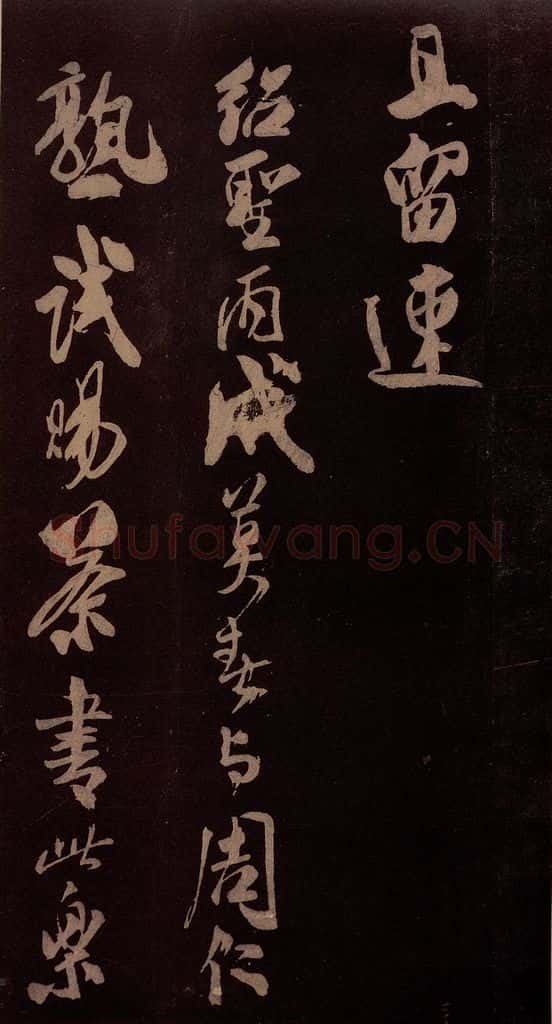 且留連
紹聖丙戌莫春与周仁
熟試賜茶書此樂
Shufawang.CN